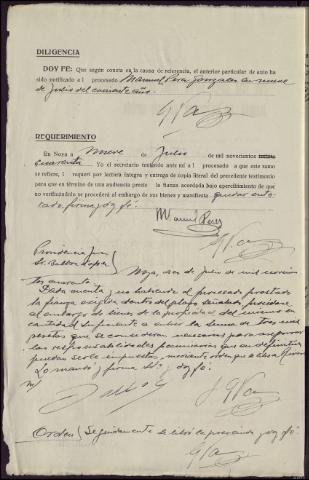 DILIGENCIA
DOY FE: Que según consta en la causa de referencia, el anterior particular de auto ha
sido notificado al procesado Manuel Pérez Gonzalez en nueve
de Julio del corriente año.
REQUERIMIENTO
En Noya a nueve de Julio de mil novecientos
cuarenta Yo el secretario teniendo ante mí al procesado a que este sumario
se refiere, le requerí por lectura íntegra y entrega de copia literal del precedente testimonio
para que en término de una audiencia preste la fianza acordada bajo apercibimiento de que
no verificándolo se procederá al embargo de sus bienes y manifiesta quedar ente-
rado firma, doy fé.
Manuel Perez
Providencia Juez
Sr.
Noya, de julio de mil novecien-
tos cuarenta.
Dada cuenta; no habiendo el procesado prestado
la fianza exigida dentro del plazo señalado, procédase
al embargo de bienes de la propiedad del mismo en
cantidad suficiente a cubrir la suma de tres mil
pesetas que se consideran necesarias para asegurar
las responsabilidades pecuniarias que en definitiva
puedan serle impuestas,
Lo mandó y firma Sª doy fé.
Orden/ Seguidamente se libró la prevenida doy fé